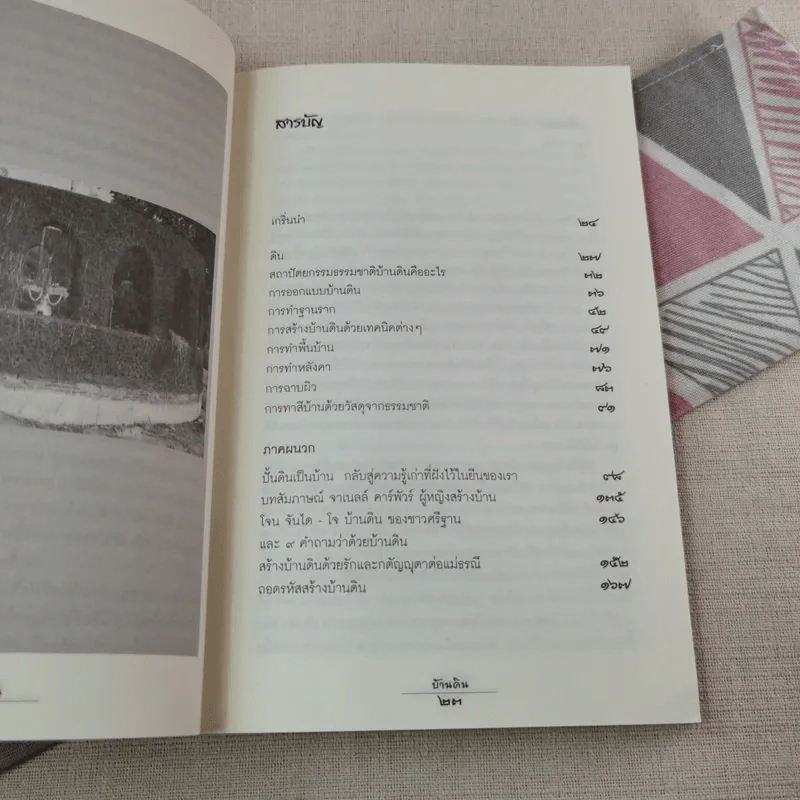 สารบัญ
เกริ่นนำ ๒๔
ดิน ๒๗
สถาปัตยกรรมธรรมชาติบ้านดินคืออะไร ๓๒
การออกแบบบ้านดิน ๓๖
การทำฐานราก ๔๒
การสร้างบ้านดินด้วยเทคนิคต่างๆ ๔๙
การทำพื้นบ้าน ๗๑
การทำหลังคา ๗๖
การฉาบผิว ๘๓
การทาสีบ้านด้วยวัสดุจากธรรมชาติ ๙๑
ภาคผนวก
ปั้นดินเป็นบ้าน กลับสู่ความรู้เก่าที่ฝังไว้ในยีนของเรา ๙๘
บทสัมภาษณ์ จาเนลล์ คาร์พัวร์ ผู้หญิงสร้างบ้าน ๑๓๕
โจน จันได - โจ บ้านดิน ของชาวศรีฐาน ๑๔๖
และ ๙ คำถามว่าด้วยบ้านดิน
สร้างบ้านดินด้วยรักและกตัญญุตาต่อแม่ธรณี ๑๕๒
ถอดรหัสสร้างบ้านดิน ๑๖๗
บ้านดิน
๒๓